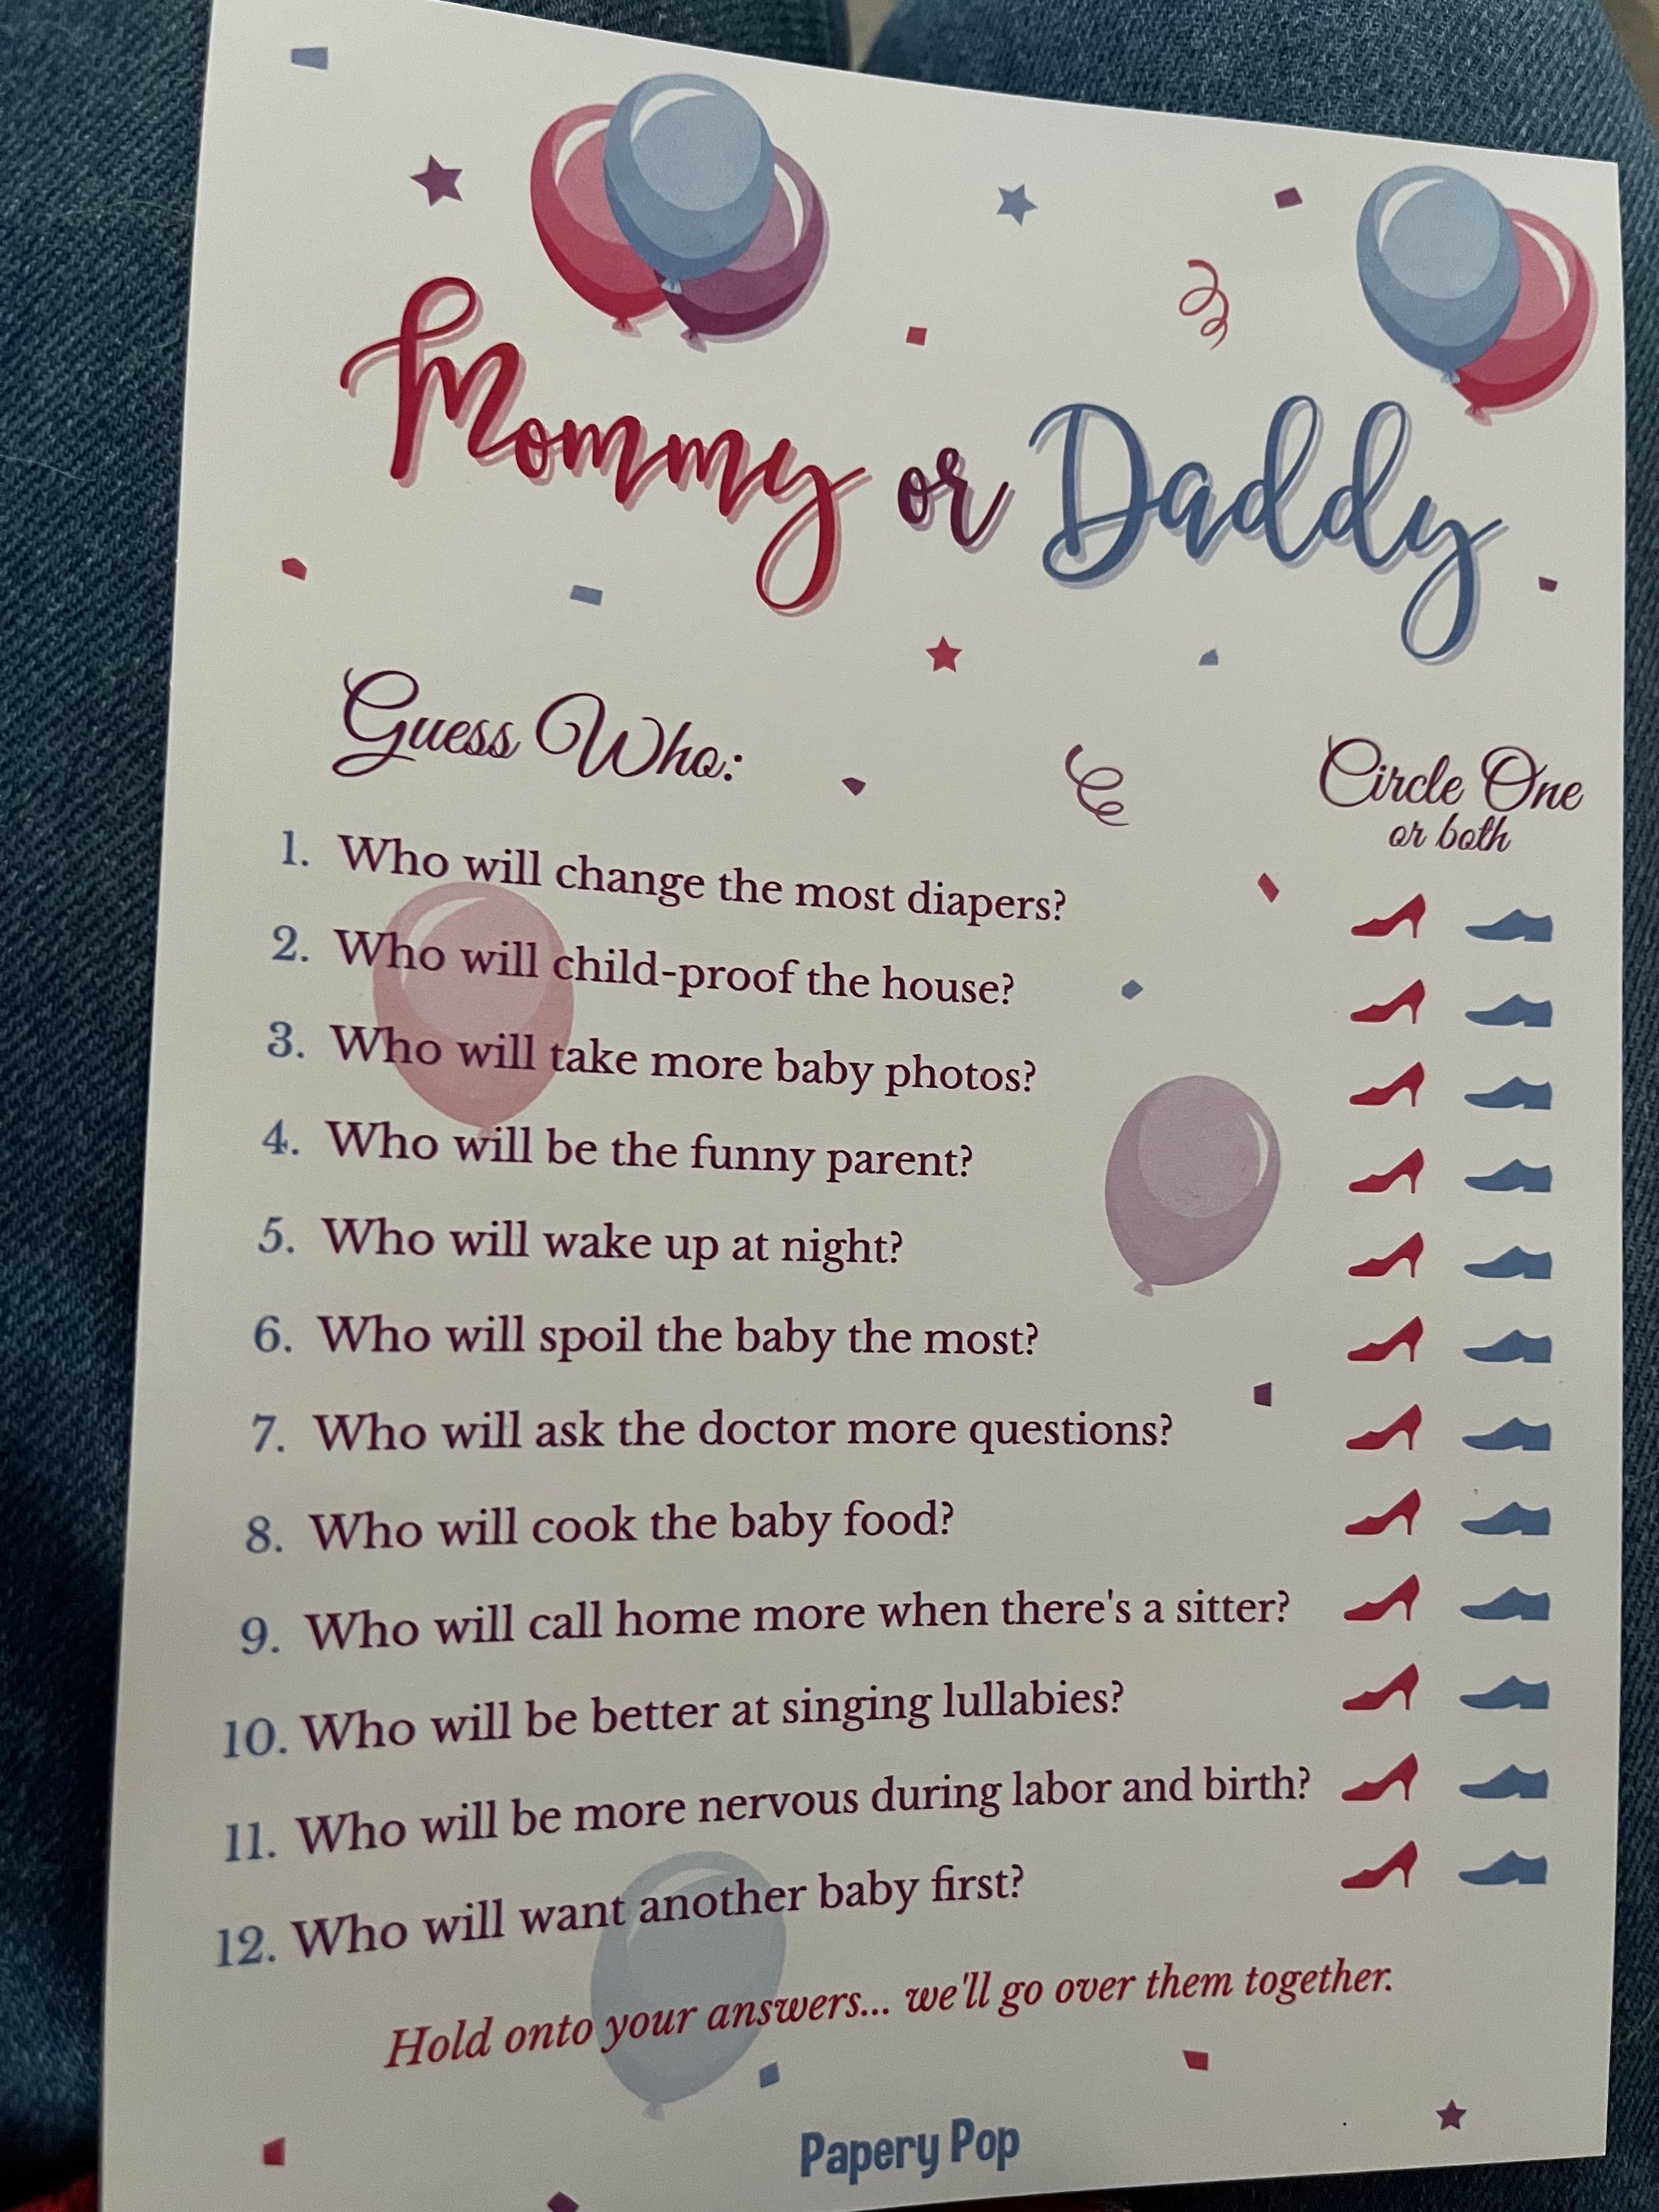 Mommy or Daddy
Guess Who:
Circle One
or both
1. Who will change the most diapers?
2. Who will child-proof the house?
3. Who will take more baby photos?
4. Who will be the funny parent?
5. Who will wake up at night?
6. Who will spoil the baby the most?
7. Who will ask the doctor more questions?
8. Who will cook the baby food?
9. Who will call home more when there's a sitter?
10. Who will be better at singing lullabies?
11. Who will be more nervous during labor and birth?
12. Who will want another baby first?
Hold onto your answers... we'll go over them together.
Papery Pop